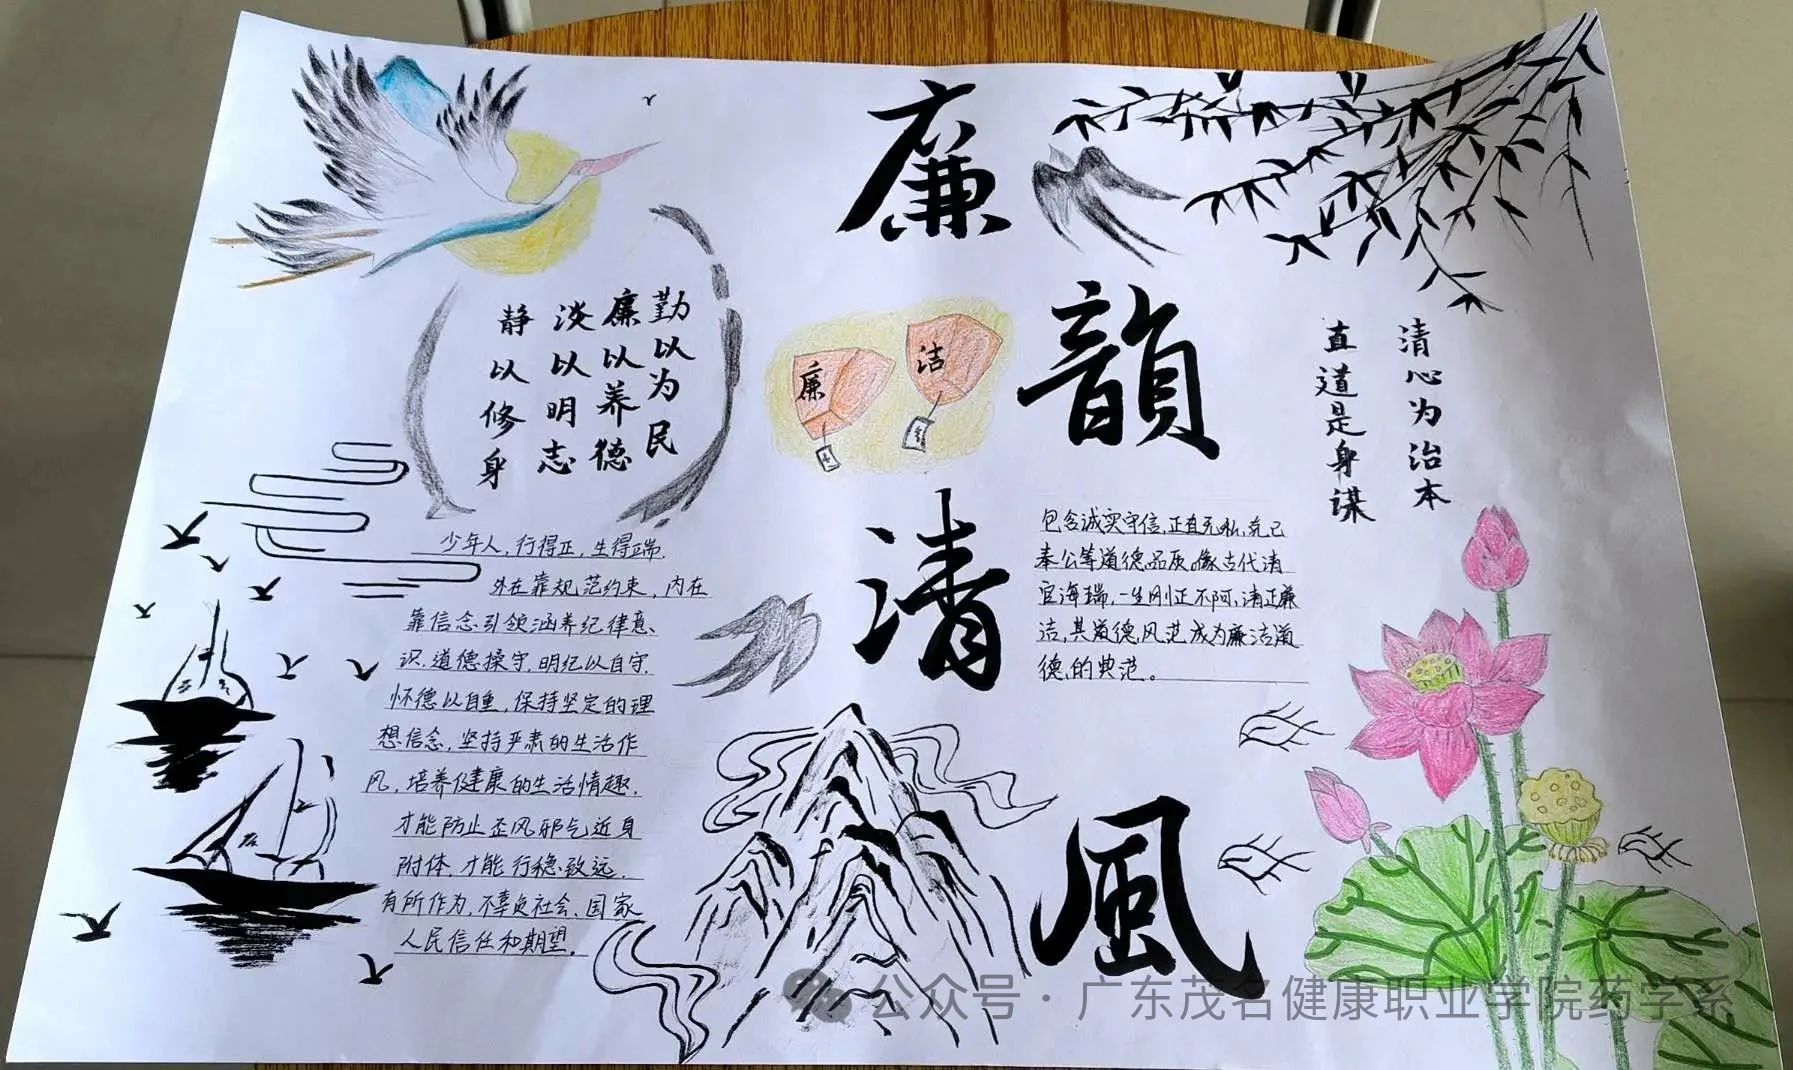 廉
韻
清
風
勤以为民
廉以养德
淡以明志
静以修身
廉
洁
清心为治本
直道是身谋
少年人,行得正,生得端.
外在靠规范约束,内在
靠信念引领涵养纪律意
识.道德操守,明纪以自守.
怀德以自重,保持坚定的理
想信念,坚持严肃的生活作
风,培养健康的生活情趣.
才能防止歪风邪气近身
附体.才能行稳致远.
有所作为,不辜负社会、国家
人民信任和期望。
包含诚实守信,正直无私,克己
奉公等道德品质。像古代清
官海瑞,一生刚正不阿,清正廉
洁,其道德风范成为廉洁道
德的典范。
公众号·广东茂名健康职业学院药学系